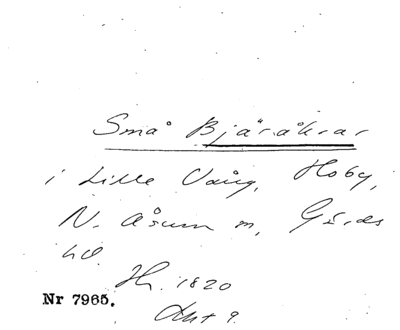 Små Bjäråkrar
i Lille Vång, Hoby,
N. Åsum sn, Gärds
hd.
Hr. 1820
Nr 7965.
Akt 9.